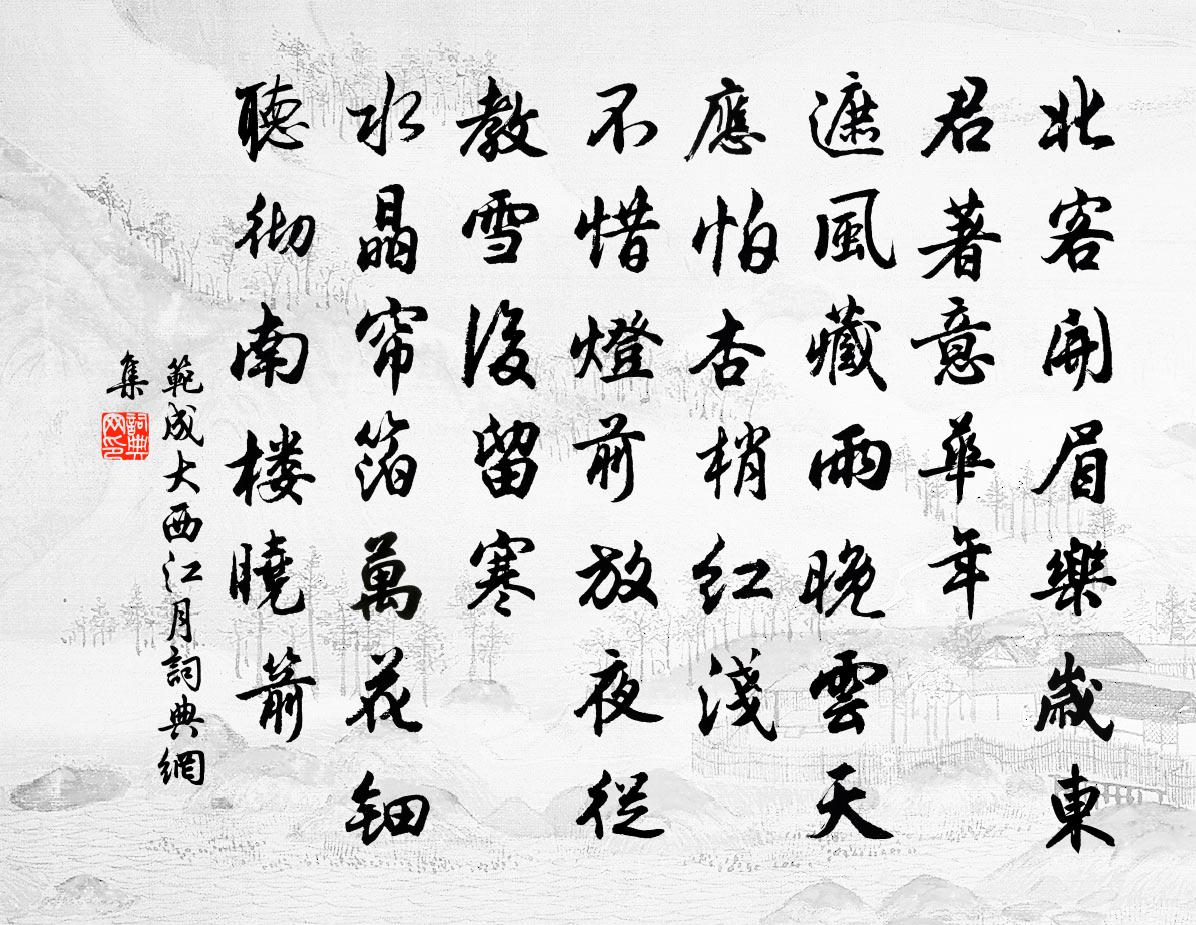 北客開眉樂歲東
君著意華年
遮風藏雨晚雲天
應怕杏梢紅淺
不惜燈前放夜從
教雪後留寒
水晶帘箔萬花钿
聽彻南楼曉箭
範成大西江月詞典網
集
詞典网印